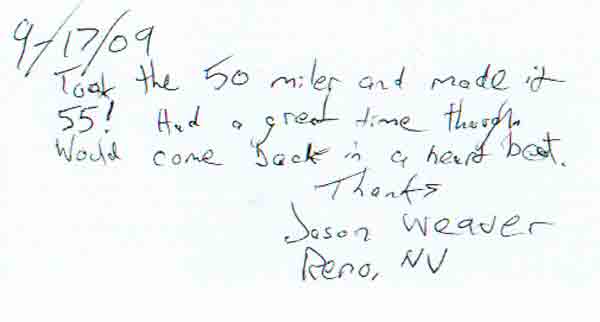 9/17/09
Took the 50 miler and made it
55! Had a great time though.
Would come back in a heart beat.
Thanks
Jason Weaver
Reno, NV